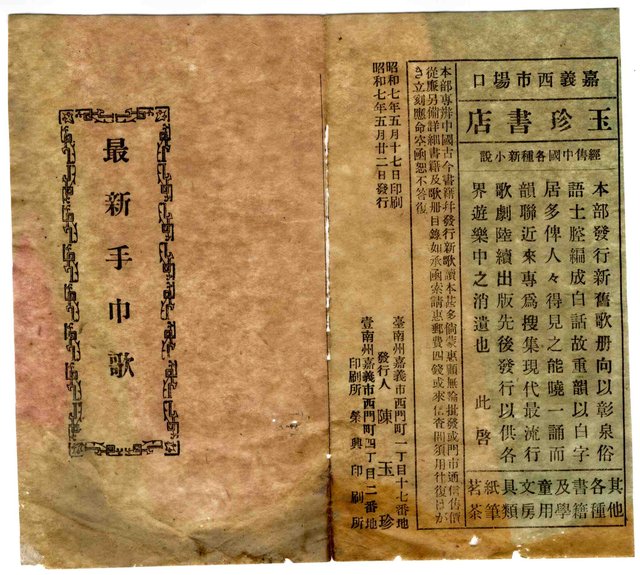 嘉義西市場口
玉珍書店
經售中國各種新小說
本部發行新舊歌册向以彰泉俗
語土腔編成白話故重韻以白字
居多俾人々得見之能曉一誦而
韻聯近來專爲搜集現代最流行
歌劇陸續出版先後發行以供各
界遊樂中之消遣也　此啓
其他各種書籍及學童用文房具類紙筆茗茶
本部專辦中國古今書籍幷發行新歌讀本甚多倘蒙惠顧無論批發或門市通信售價
從廉另備詳細書籍及歌册目錄如承函索請惠郵費四錢或來信查問須用往復はが
き立刻應命空函恕不答復
昭和七年五月十七日印刷
昭和七年五月廿二日發行
臺南州嘉義市西門町一丁目十七番地
發行人　陳玉珍
臺南州嘉義市西門町四丁目二番地
印刷所　榮興印刷所
最新手巾歌